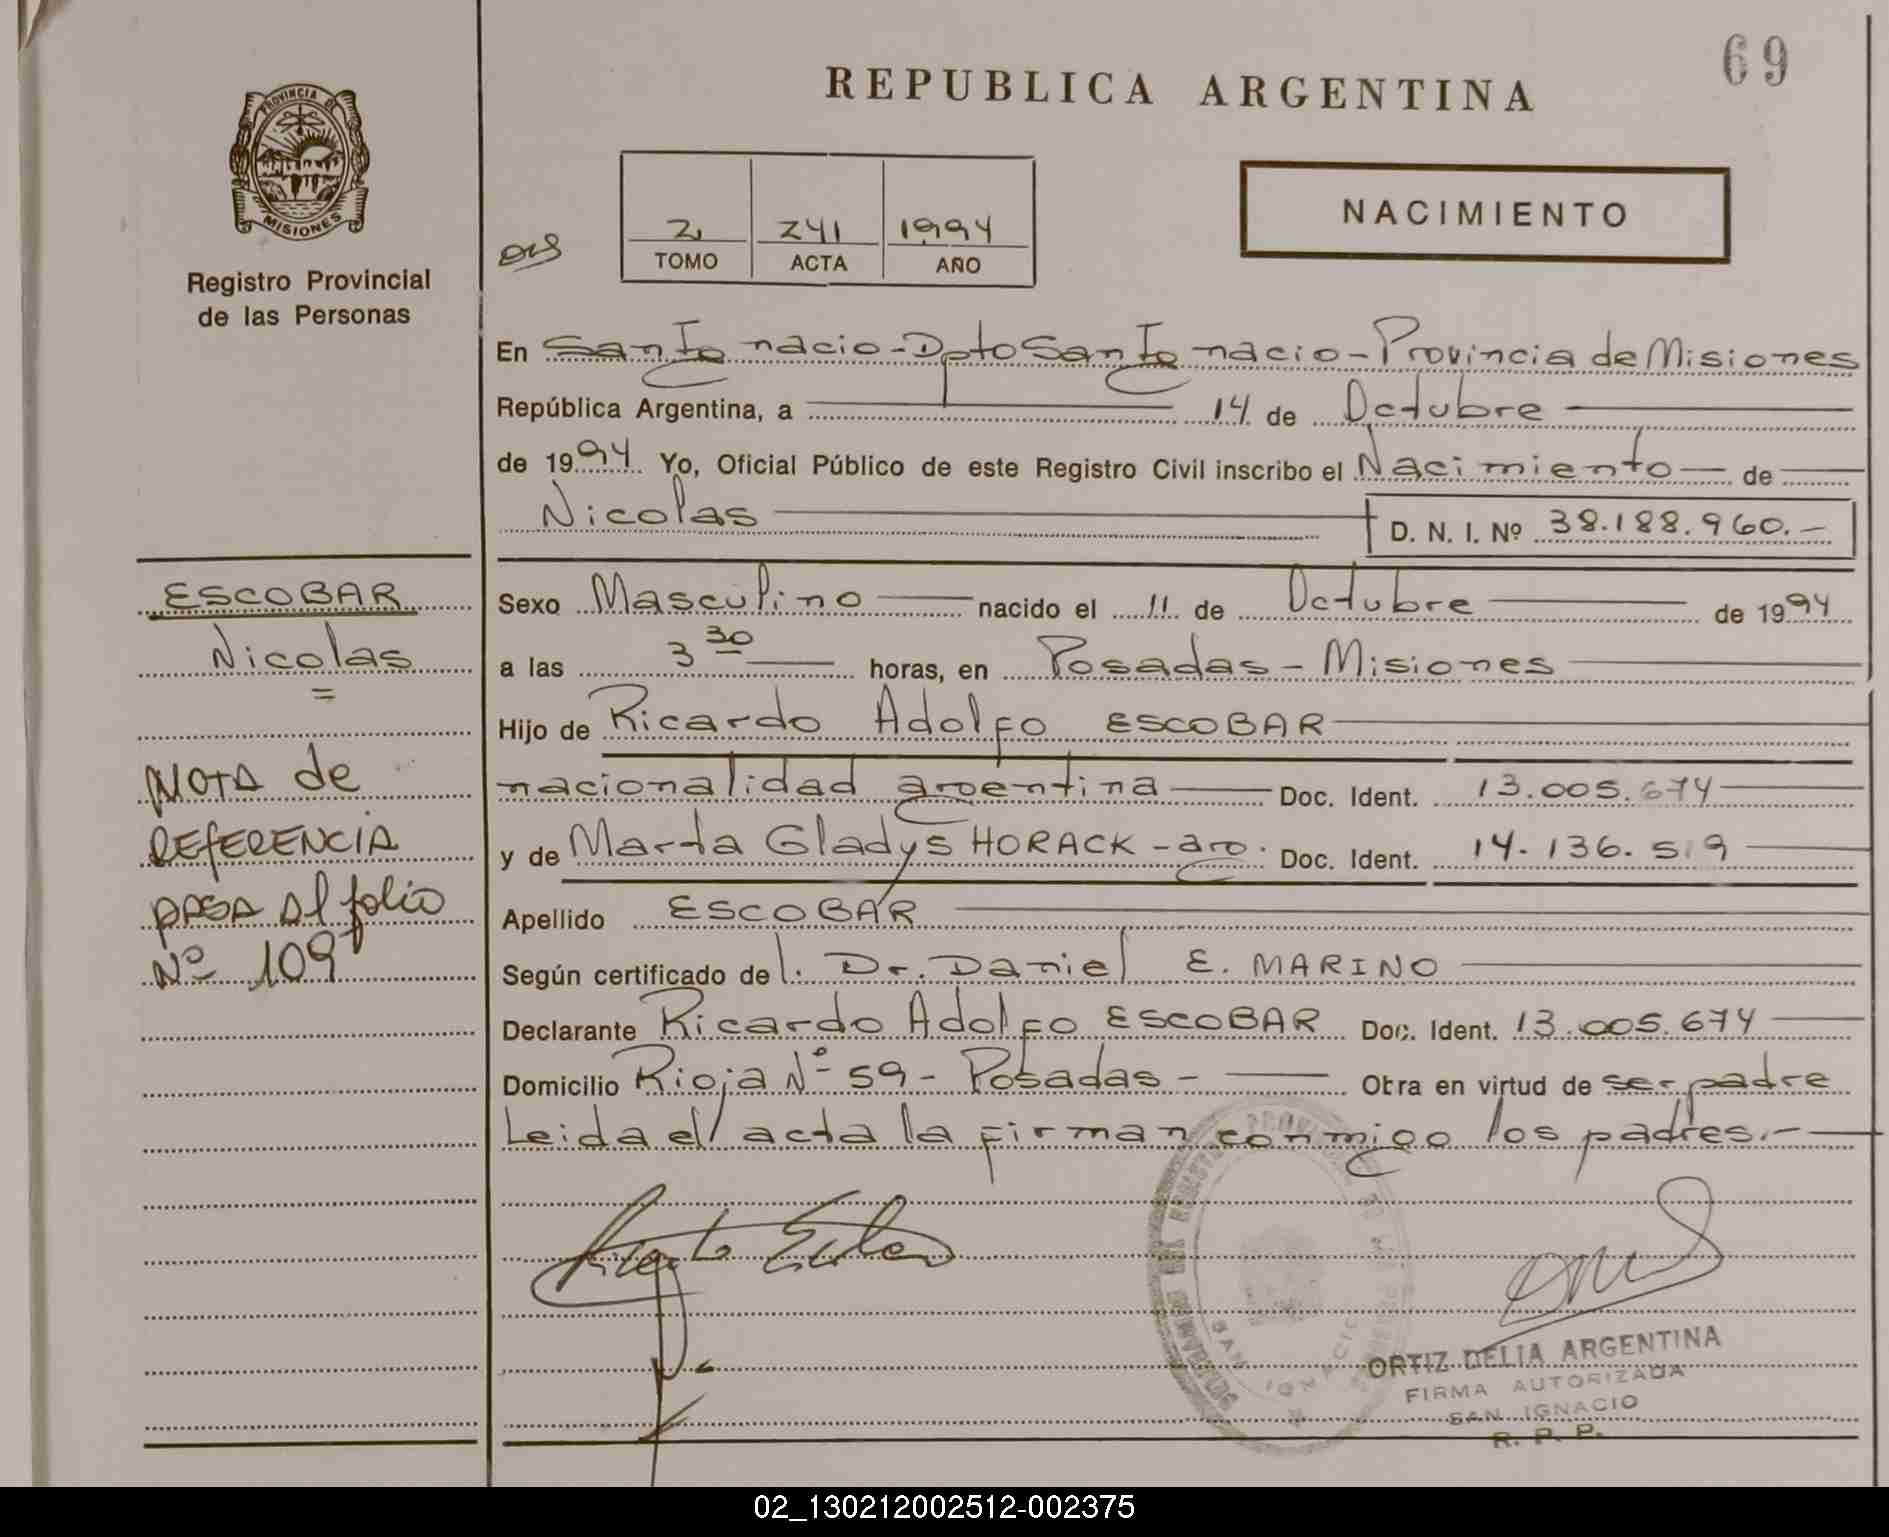 69
REPUBLICA ARGENTINA
PROVINCIA DE
MISIONES
Registro Provincial
de las Personas
2 241 1994
TOMO ACTA AÑO
NACIMIENTO
En San Ignacio - Dpto San Ignacio - Provincia de Misiones
República Argentina, a 14 de Octubre
de 1994 Yo, Oficial Público de este Registro Civil inscribo el Nacimiento de
Nicolas D. N. I. Nº 38.188.960.-
Sexo Masculino nacido el 11 de Octubre de 1994
a las 3 30 horas, en Posadas - Misiones
Hijo de Ricardo Adolfo ESCOBAR
nacionalidad argentina Doc. Ident. 13.005.674
y de Marta Gladys HORACK - arg. Doc. Ident. 14.136.519
Apellido ESCOBAR
Según certificado del. Dr. Daniel E. MARINO
Declarante Ricardo Adolfo ESCOBAR Doc. Ident. 13.005.674
Domicilio Rioja Nº 59 - Posadas - Obra en virtud de ser padre
Leida el acta la firman conmigo los padres.-
ESCOBAR
Nicolas
=
NOTA de
REFERENCIA
PASA Al folio
Nº 109
SAN IGNACIO
ORTIZ DELIA ARGENTINA
FIRMA AUTORIZADA
SAN IGNACIO
R. P. P.
02_130212002512-002375